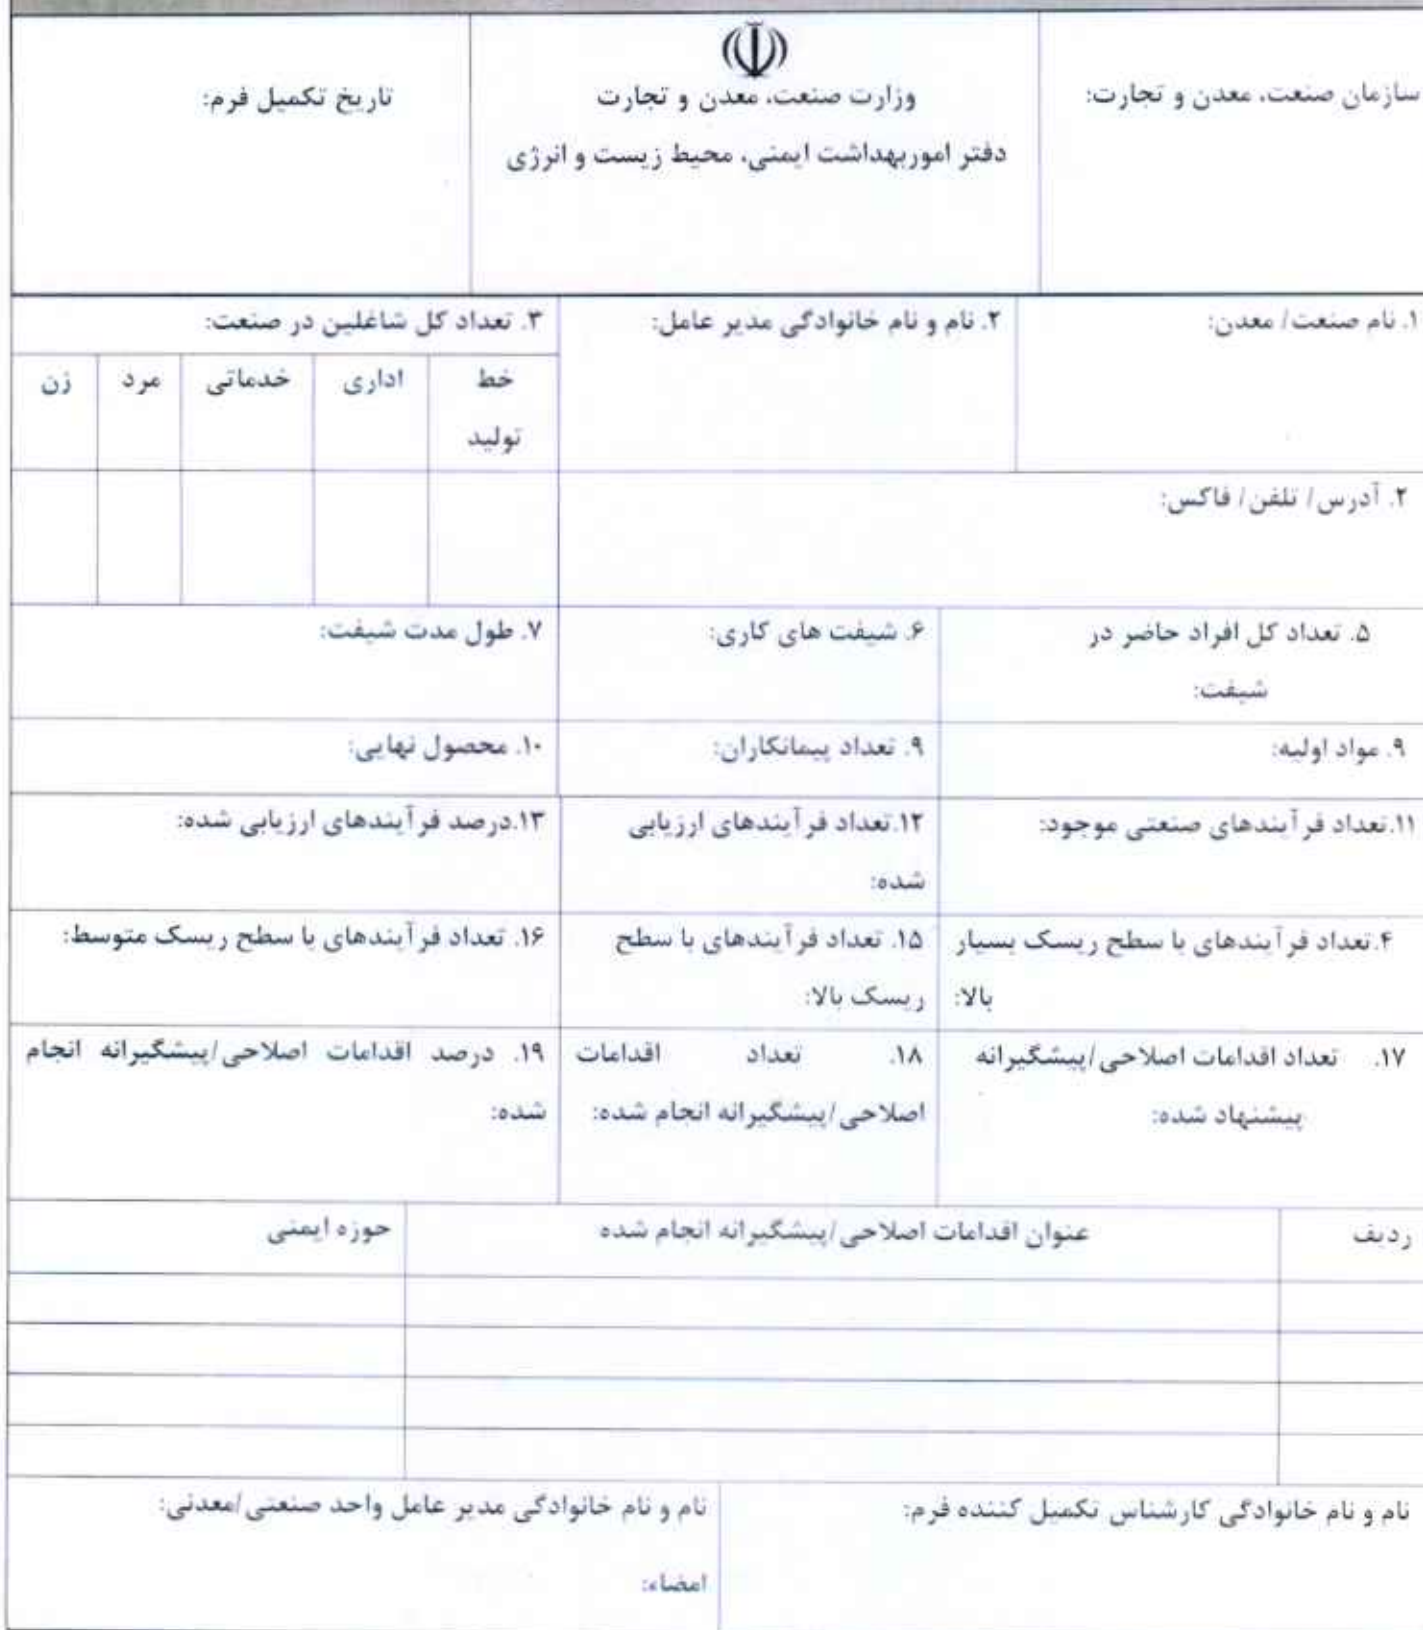 سازمان صنعت، معدن و تجارت:
وزارت صنعت، معدن و تجارت
دفتر اموربهداشت ایمنی، محیط زیست و انرژی
تاریخ تکمیل فرم:
۱. نام صنعت/ معدن:
۲. نام و نام خانوادگی مدیر عامل:
۳. تعداد کل شاغلین در صنعت:
خط
تولید
اداری
خدماتی
مرد
زن
۲. آدرس/ تلفن/ فاکس:
۵. تعداد کل افراد حاضر در
شیفت:
۶. شیفت های کاری:
۷. طول مدت شیفت:
۹. مواد اولیه:
۹. تعداد پیمانکاران:
۱۰. محصول نهایی:
۱۱.تعداد فرآیندهای صنعتی موجود:
۱۲.تعداد فرآیندهای ارزیابی
شده:
۱۳.درصد فرآیندهای ارزیابی شده:
۴.تعداد فرآیندهای با سطح ریسک بسیار
بالا:
۱۵. تعداد فرآیندهای با سطح
ریسک بالا:
۱۶. تعداد فرآیندهای با سطح ریسک متوسط:
۱۷. تعداد اقدامات اصلاحی/پیشگیرانه
پیشنهاد شده:
۱۸. تعداد اقدامات
اصلاحی/پیشگیرانه انجام شده:
۱۹. درصد اقدامات اصلاحی/پیشگیرانه انجام
شده:
ردیف
عنوان اقدامات اصلاحی/پیشگیرانه انجام شده
حوزه ایمنی
نام و نام خانوادگی کارشناس تکمیل کننده فرم:
نام و نام خانوادگی مدیر عامل واحد صنعتی/معدنی:
امضاء: